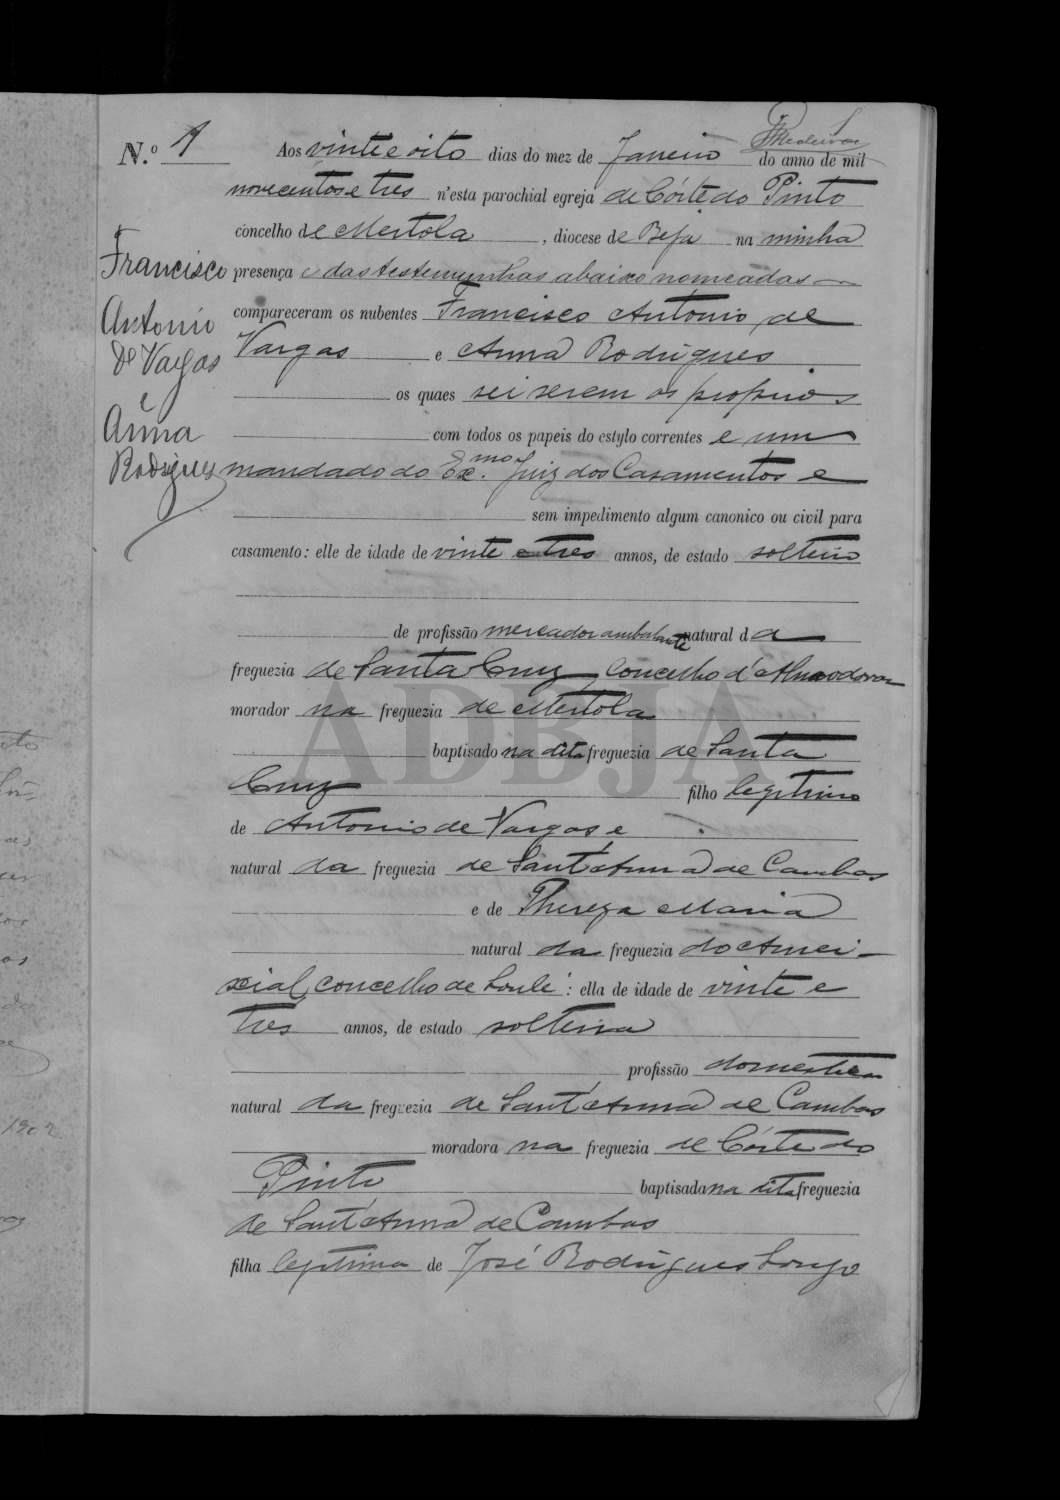 Medeiros
N.º 1 Aos vinte e oito dias do mez de Janeiro do anno de mil
novecentos e tres n'esta parochial egreja de Córte do Pinto
concelho de Mertola, diocese de Beja na minha
presença e das testemunhas abaixo nomeadas
compareceram os nubentes Francisco Antonio de
Vargas e Anna Rodrigues
os quaes sei serem os proprios
com todos os papeis do estylo correntes e um
mandado do Ex.mo Juiz dos Casamentos e
sem impedimento algum canonico ou civil para
casamento: elle de idade de vinte e tres annos, de estado solteiro
de profissão mercador ambulante natural da
freguezia de Santa Cruz, concelho d'Almodovar
morador na freguezia de Mertola
baptisado na dita freguezia de Santa
Cruz filho legitimo
de Antonio de Vargas, e
natural da freguezia de Sant'Anna de Cambas
e de Thereza Maria
natural da freguezia do Amei-
xial, concelho de Loulé: ella de idade de vinte e
tres annos, de estado solteira
profissão domestica
natural da freguezia de Sant'Anna de Cambas
moradora na freguezia de Córte do
Pinto baptisada na dita freguezia
de Sant'Anna de Cambas
filha legitima de José Rodrigues Longo
Francisco
Antonio
de Vargas
e
Anna
Rodrigues
ADBJA
1902